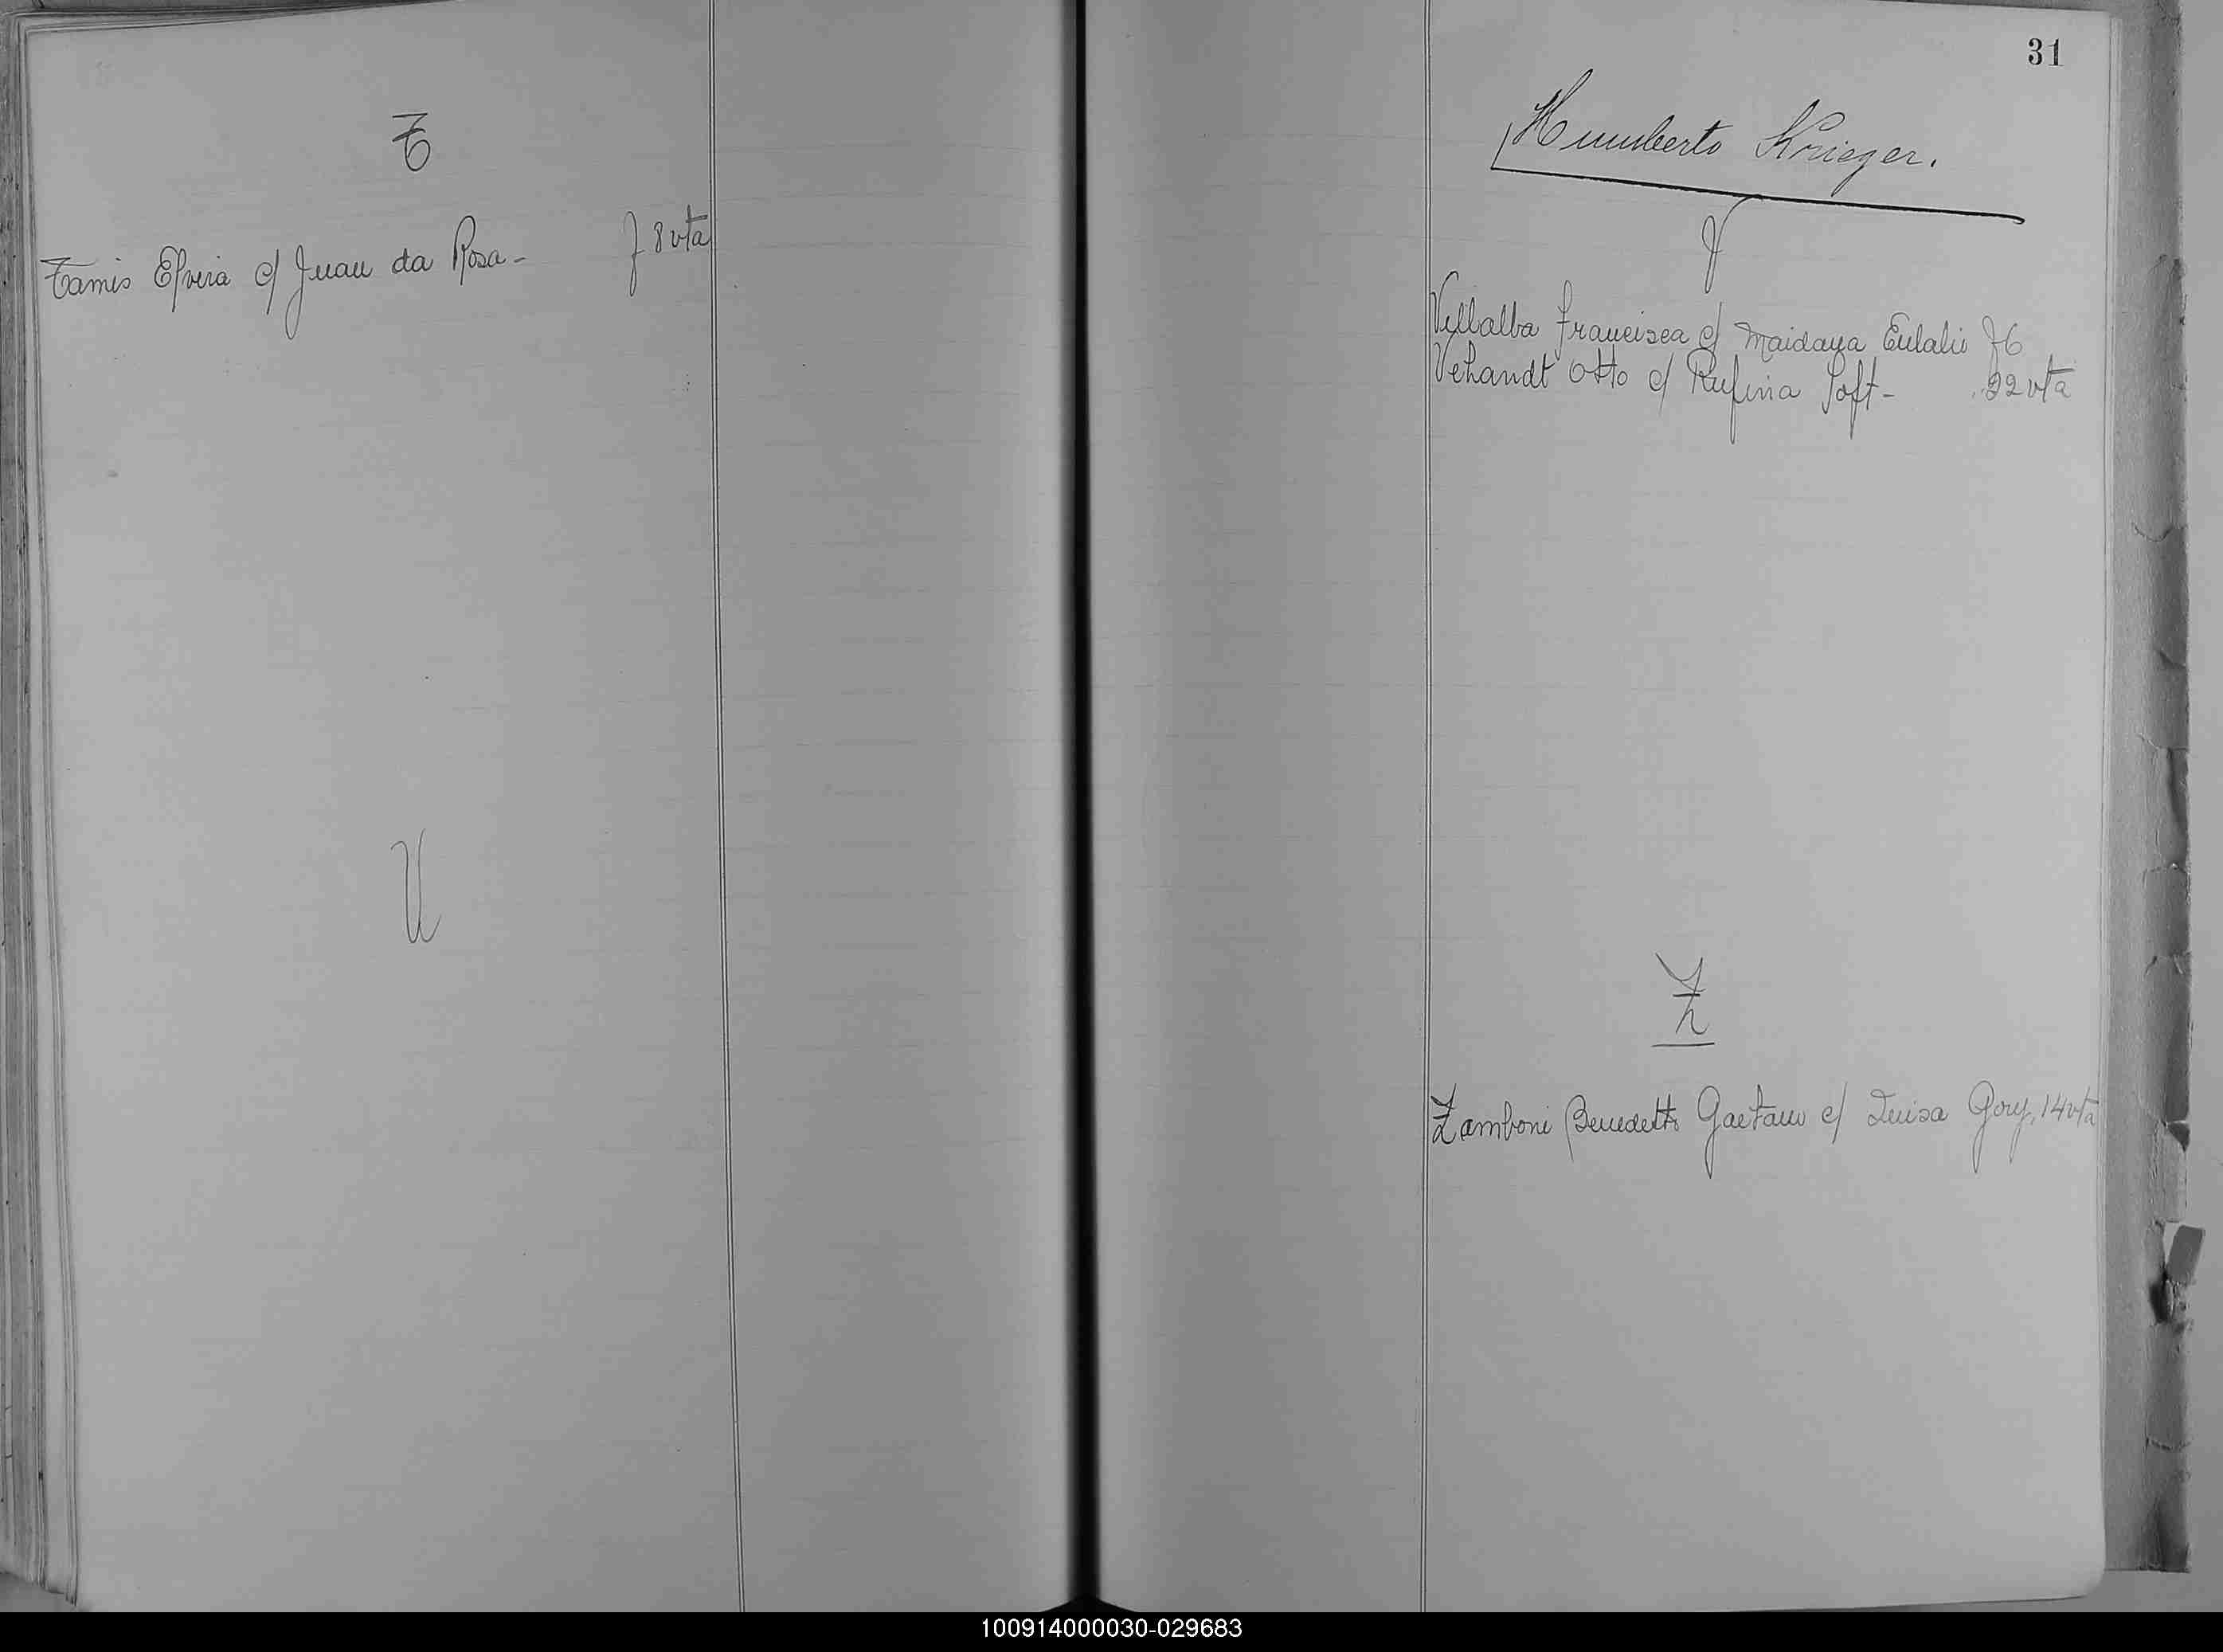 T
Tamis Elveia c/ Juan da Rosa - f 8 vta
U
31
Humberto Krieger.
V
Villalba Francisca c/ Maidana Eulalio f 6
Vehandt Otto c/ Rufina Soft - 22 vta
Z
Zamboni Benedetto Gaetano c/ Luisa Gory, 14 vta
100914000030-029683